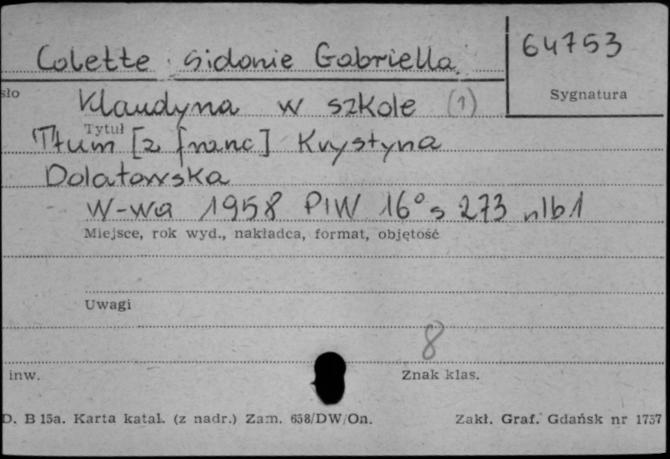 Colette Sidonie Gabriella
64753
Sygnatura
sło
Klaudyna w szkole (1)
Tytuł
Tłum [z franc] Krystyna
Dolatowska
W-wa 1958 PIW 16° s 273 nlb1
Miejsce, rok wyd., nakładca, format, objętość
Uwagi
8
inw.
Znak klas.
D. B 15a. Karta katal. (z nadr.) Zam. 658/DW/On.
Zakł. Graf. Gdańsk nr 1757